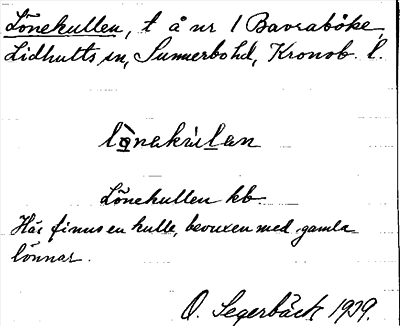 Lönekullen, t å nr 1 Bavraböke,
Lidhults sn, Sunnerbo hd, Kronob. l.
Lönekullen kb
Här finns en kulle, bevuxen med gamla
lönnar.
O. Segerbäck 1929.